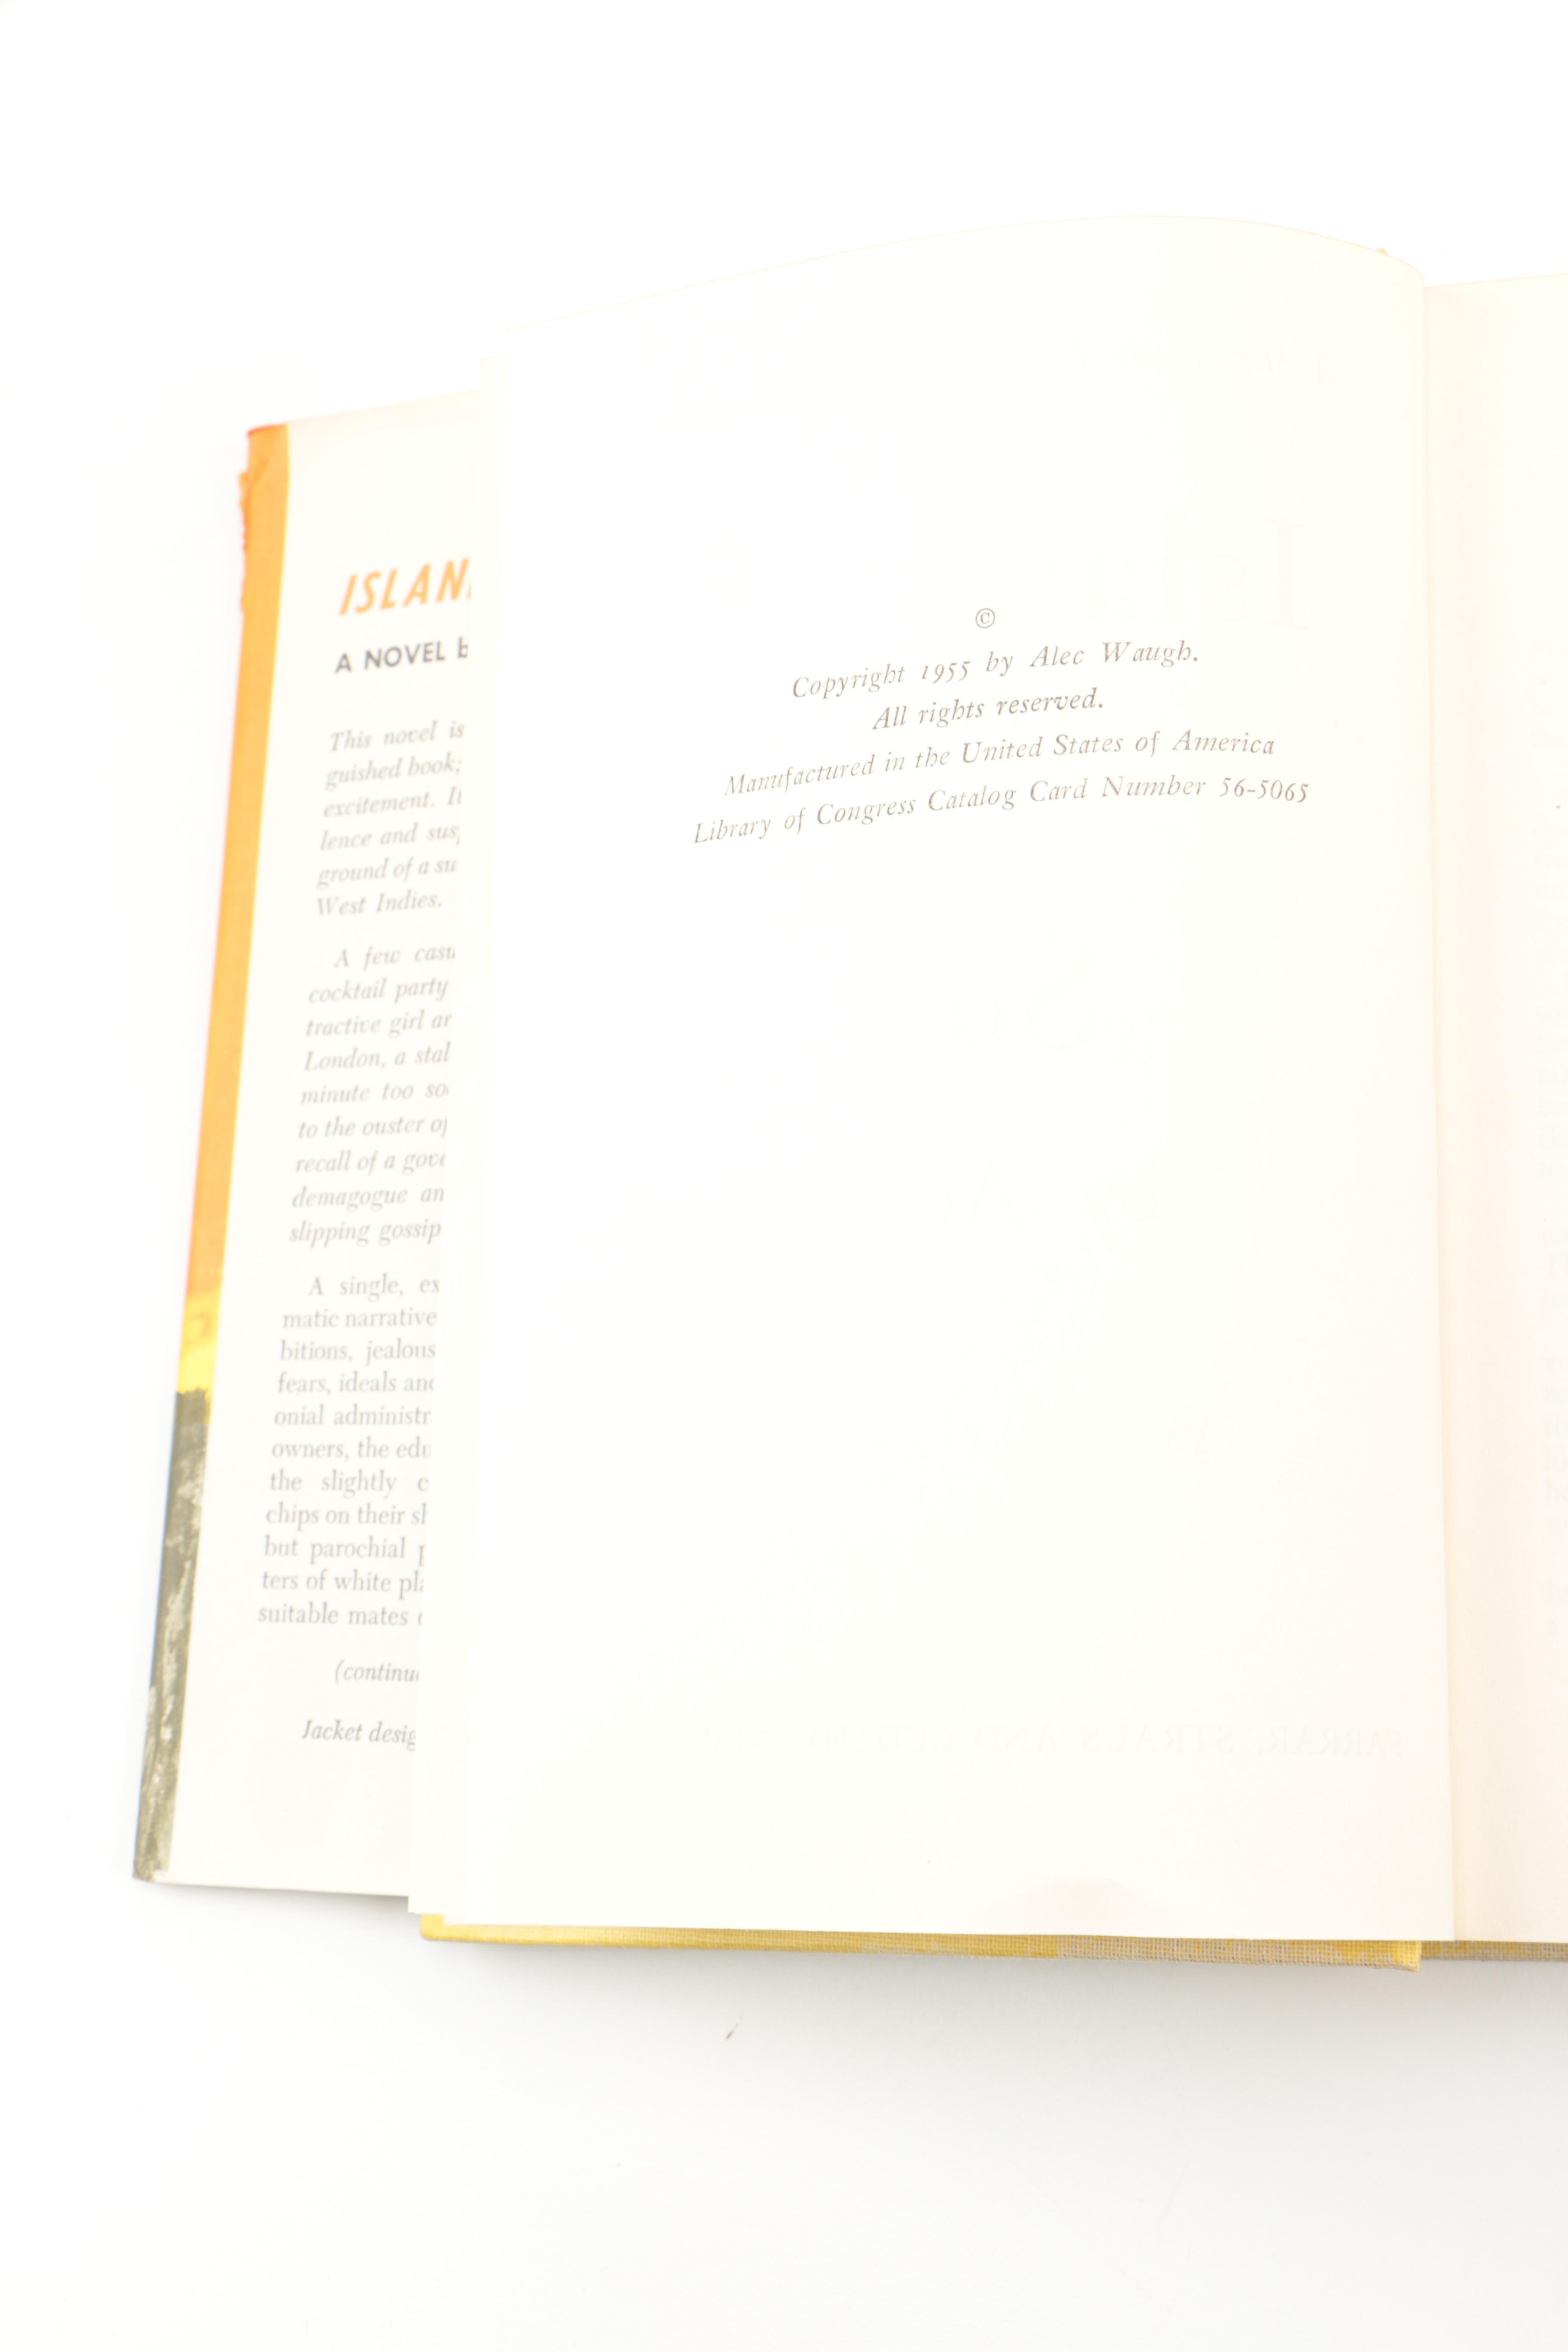 ISLAN
A NOVEL b
This novel is
guished book;
excitement. I
lence and sus
ground of a su
West Indies.
A few casu
cocktail party
tractive girl ar
London, a stal
minute too so
to the ouster of
recall of a gove
demagogue an
slipping gossip
A single, ex
matic narrative
bitions, jealous
fears, ideals and
onial administr
owners, the edu
the slightly c
chips on their sh
but parochial p
ters of white pla
suitable mates
(continu
Jacket desig
©
Copyright 1955 by Alec Waugh.
All rights reserved.
Manufactured in the United States of America
Library of Congress Catalog Card Number 56-5065